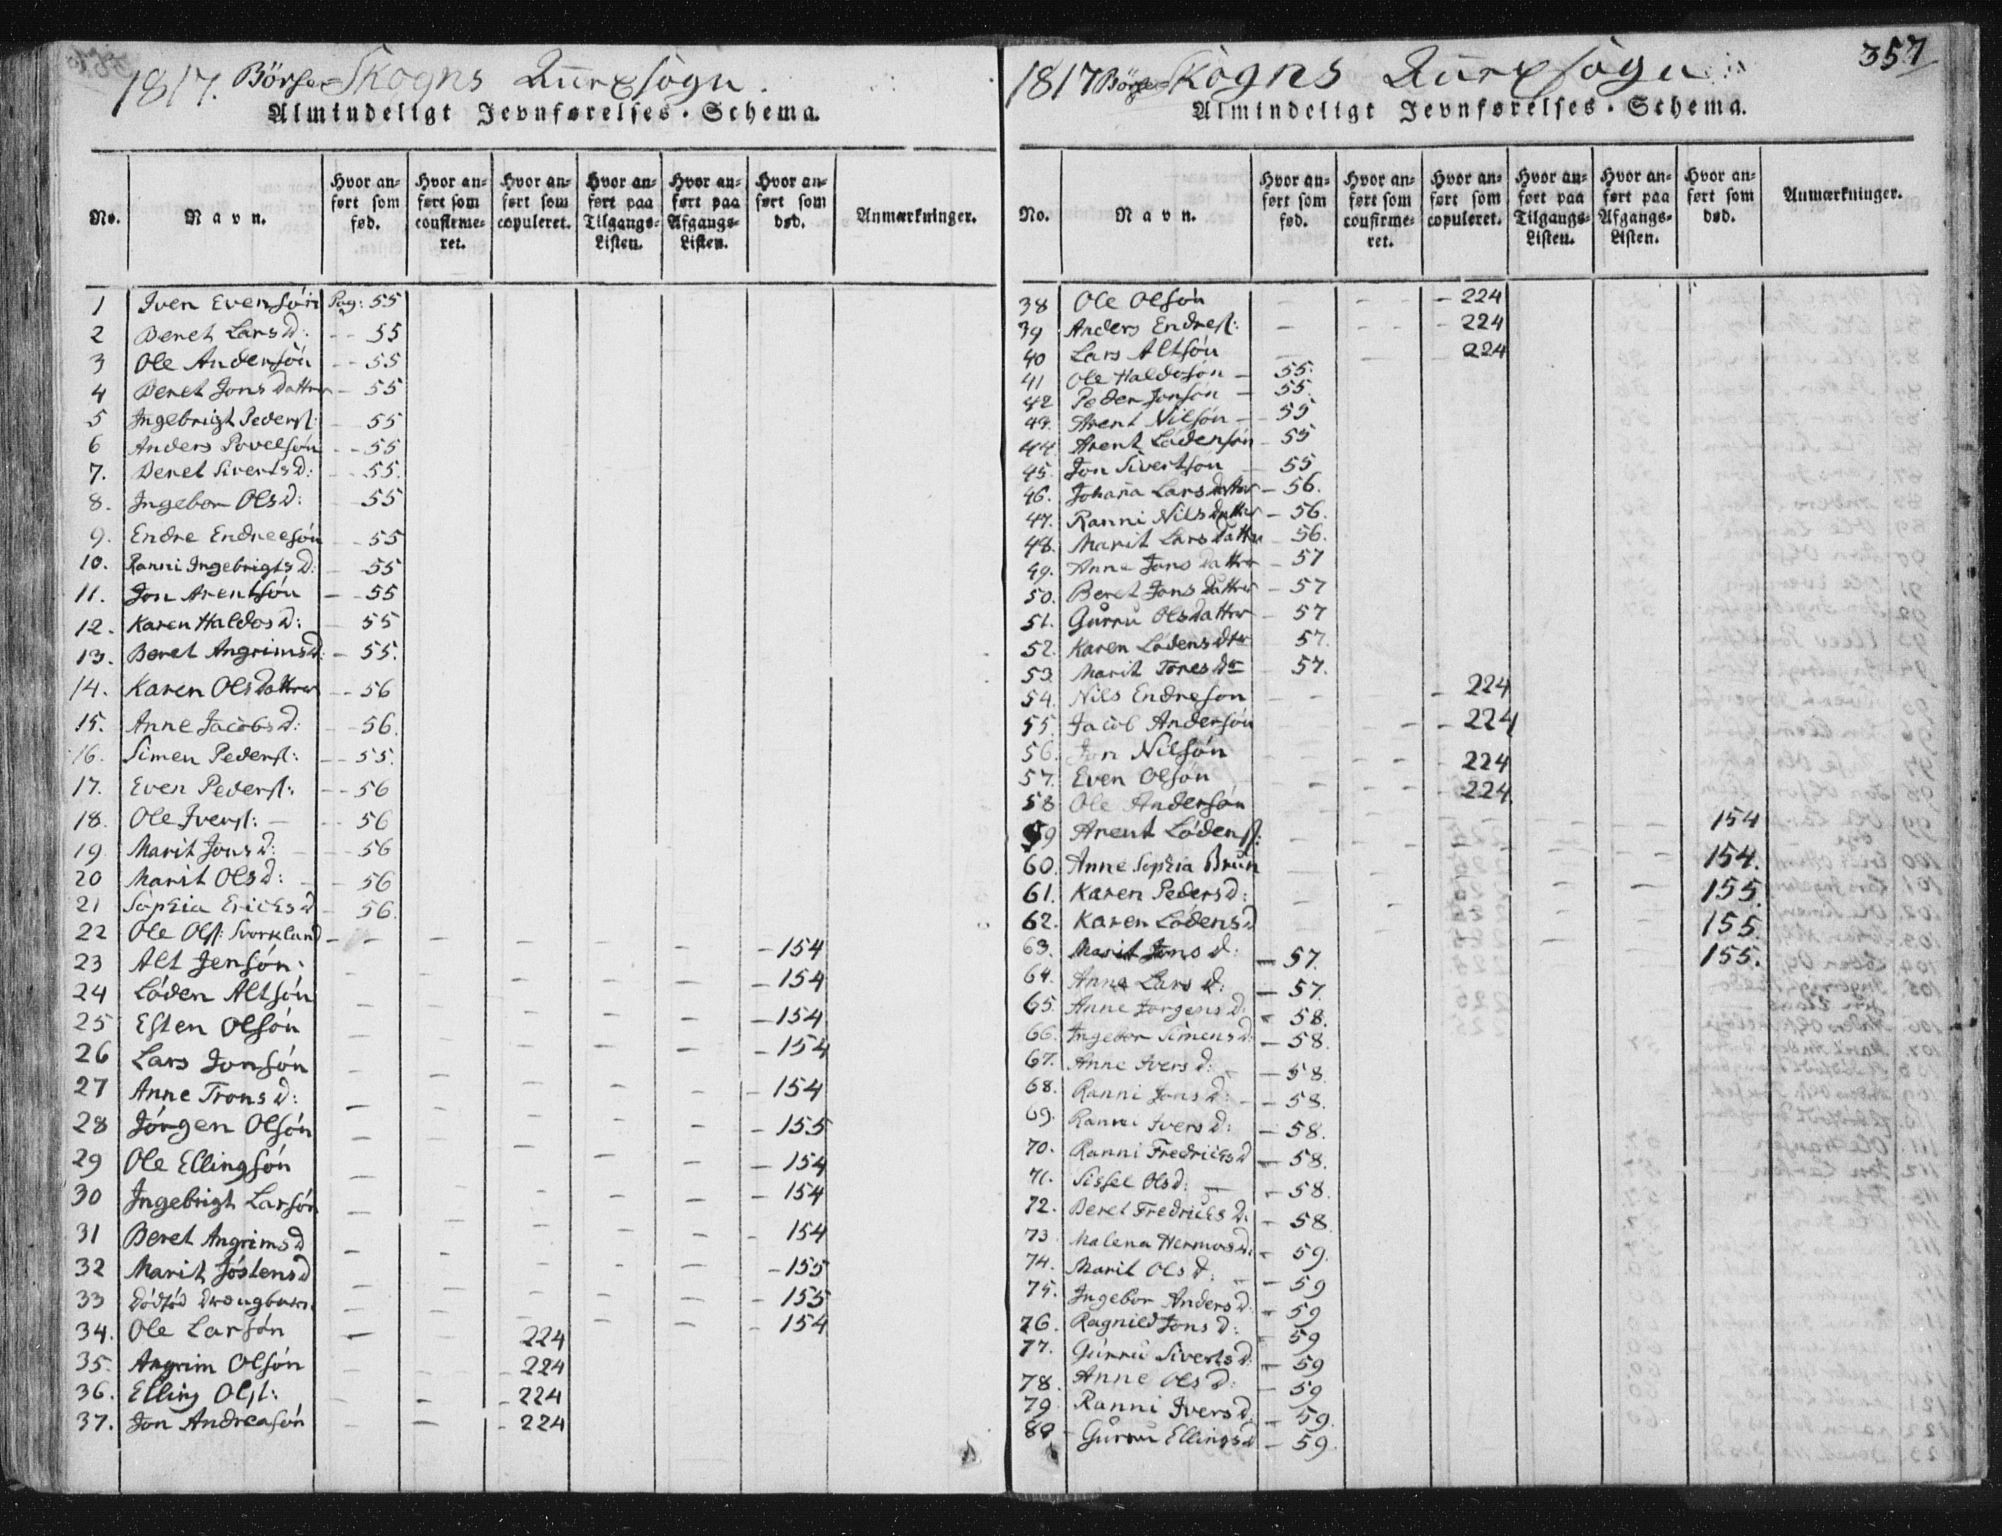 1817. Börse-Skogns Annexsogn.
Almindeligt Jevnførelses-Schema.
No.
Navn.
Hvor anført som fød.
Hvor anført som confirmeret.
Hvor anført som copuleret.
Hvor anført paa Tilgangs-Listen.
Hvor anført paa Afgangs-Listen.
Hvor anført som død.
Anmærkninger.
1 Iven Evensön Pag: 55
2 Beret Larsd: 55
3 Ole Andersön 55
4 Beret Jons Datter 55
5 Ingebrigt Peders: 55
6 Anders Povelsön 55
7. Beret Sivertsd: 55.
8. Ingebor Olsd: 55
9. Endre Endresön 55
10. Ranni Ingebrigtsd: 55
11. Jon Arentsön 55
12. Karen Haldosd: 55
13. Beret Angrimsd: 55.
14. Karen Olsdatter 56
15. Anne Jacobsd: 56.
16. Simen Peders: 55.
17. Even Peders: 56
18. Ole Ivers: 56
19 Marit Jonsd: 56
20 Marit Olsd: 56
21 Sophia Ericksd 56.
22 Ole Ols: Svorkland 154
23 Alt Jensön 154
24 Löden Altsön 154
25 Esten Olsön 154
26 Lars Jonsön 154
27 Anne Tronsd: 155
28 Jörgen Olsön 154
29 Ole Ellingsön 154
30 Ingebrigt Larsön 154
31 Beret Angrimsd 155
32 Marit Jöstensd 155
33 Dödföd Drengbarn 154
34. Ole Larsön 224
35. Angrim Olsön 224
36. Elling Ols: 224
37. Jon Andreasön 224
1817 Börse-Skogns Annexsogn 357
Almindeligt Jevnførelses-Schema.
No.
Navn.
Hvor anført som fød.
Hvor anført som confirmeret.
Hvor anført som copuleret.
Hvor anført paa Tilgangs-Listen.
Hvor anført paa Afgangs-Listen.
Hvor anført som død.
Anmærkninger.
38 Ole Olsön 224
39 Anders Endres: 224
40 Lars Altsön 224
41 Ole Haldosön 55.
42 Peder Jonsön 55.
43. Arent Nilsön 55
44 Arent Lödensön 55
45. Jon Sivertsön 55
46. Johanna Larsdatter 56.
47. Ranni Nilsdatter 56.
48. Marit Larsdatter 56.
49. Anne Jonsdatter 57
50. Beret Jonsdatter 57
51. Gurru Olsdatter 57
52. Karen Lödensdtr 57.
53. Marit Toresdr 57.
54. Nils Endreson 224
55. Jacob Andersön 224
56. Jon Nilsön 224
57. Even Olsön 224
58 Ole Andersön 154
59 Arent Lödens: 154.
60. Anne Sophia Brun 155.
61. Karen Pedersd: 155.
62. Karen Lödensd 155.
63. Marit Jonsd: 57.
64. Anne Larsd: 57.
65. Anne Jörgensd: 58.
66. Ingebor Simensd: 58.
67. Anne Iversd: 58.
68. Ranni Jonsd: 58.
69. Ranni Iversd: 58.
70. Ranni Fredricksd 58.
71. Sissel Olsd: 58.
72. Beret Fredricksd. 58.
73 Malena Hermosd: 59.
74. Marit Olsd: 59
75. Ingebor Andersd: 59
76. Ragnild Jonsd: 59
77. Gurru Sivertsd: 59
78. Anne Olsd: 59
79. Ranni Iversd. 59.
80 Gurru Ellingsd 59.